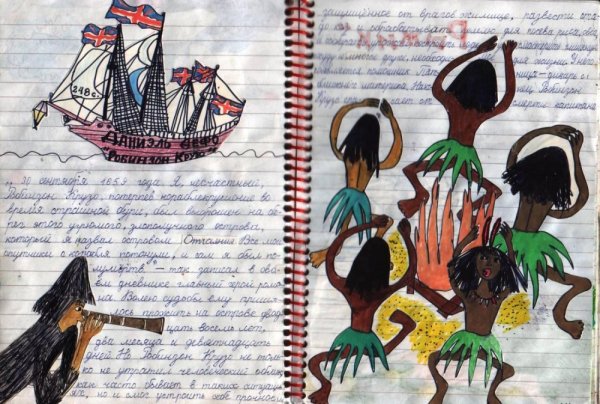 248 с.
ДАНИЭЛЬ ДЕФО
"РОБИНЗОН КРУЗО"
"30 сентября 1659 года Я, несчастный,
Робинзон Крузо, потерпев кораблекрушение во
время страшной бури, был выброшен на бе-
рег этого угрюмого, злополучного острова,
который я назвал островом Отчаяния Все мои
спутники с корабля потонули, и сам я был по-
лумёртв" – так записал в сво-
ём дневнике главный герой рома-
на. Волею судьбы ему приш-
лось прожить на острове двад-
цать восемь лет,
два месяца и девятнадцать
дней. Но Робинзон Крузо не толь-
ко не утратил человеческий облик,
как часто бывает в таких ситуаци-
ях, но и смог устроить себе прочное,
защищённое от врагов жилище, развести ста-
до коз и обрабатывать землю для посева риса,
построить
необходи жизни. У него
появляется помощник дикарь с
ближнего материка. Робинзон
Крузо спасает от смерти капитана